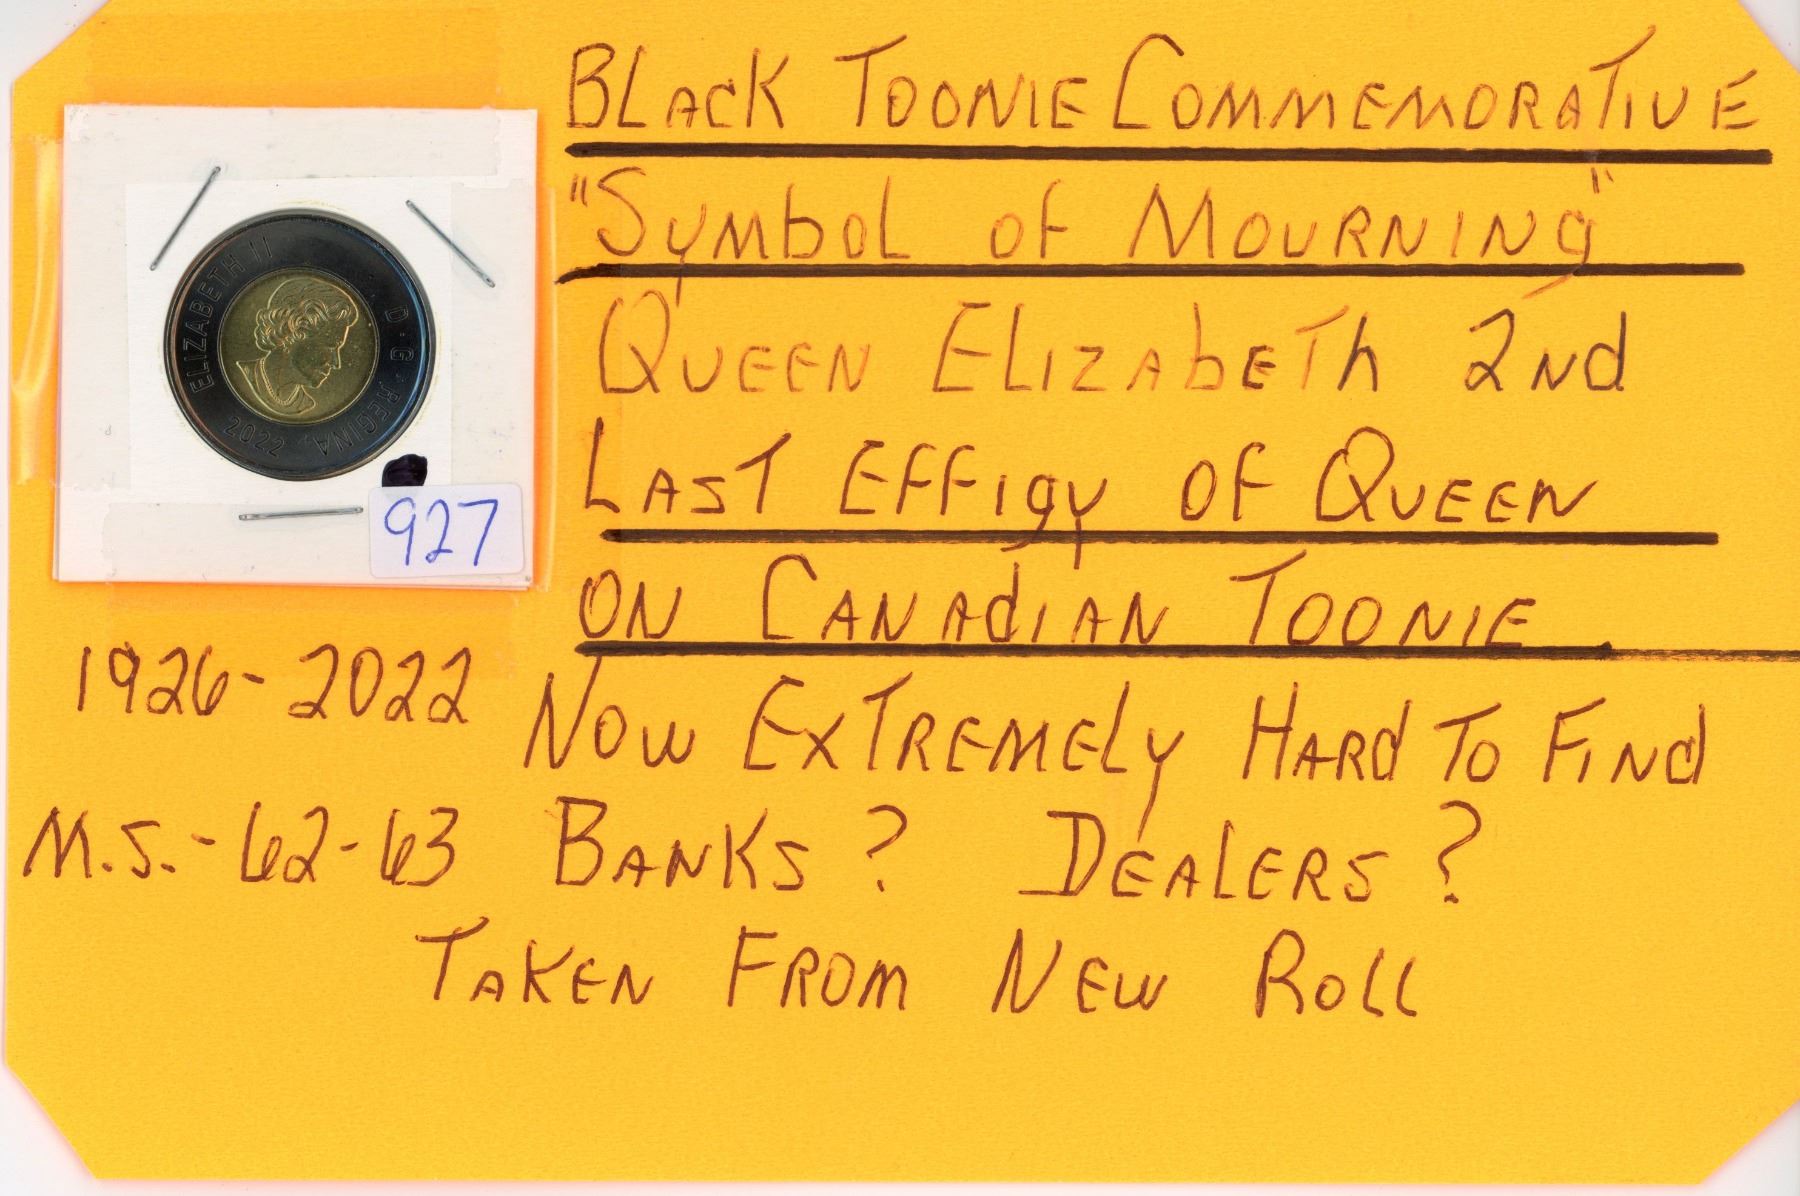 BLACK TOONIE COMMEMORATIVE
"SYMBOL OF MOURNING"
QUEEN ELIZABETH 2ND
LAST EFFIGY OF QUEEN
ON CANADIAN TOONIE.
NOW EXTREMELY HARD TO FIND
BANKS? DEALERS?
TAKEN FROM NEW ROLL
ELIZABETH II D·G·REGINA
2022
927
1926-2022
M.S.-62-63